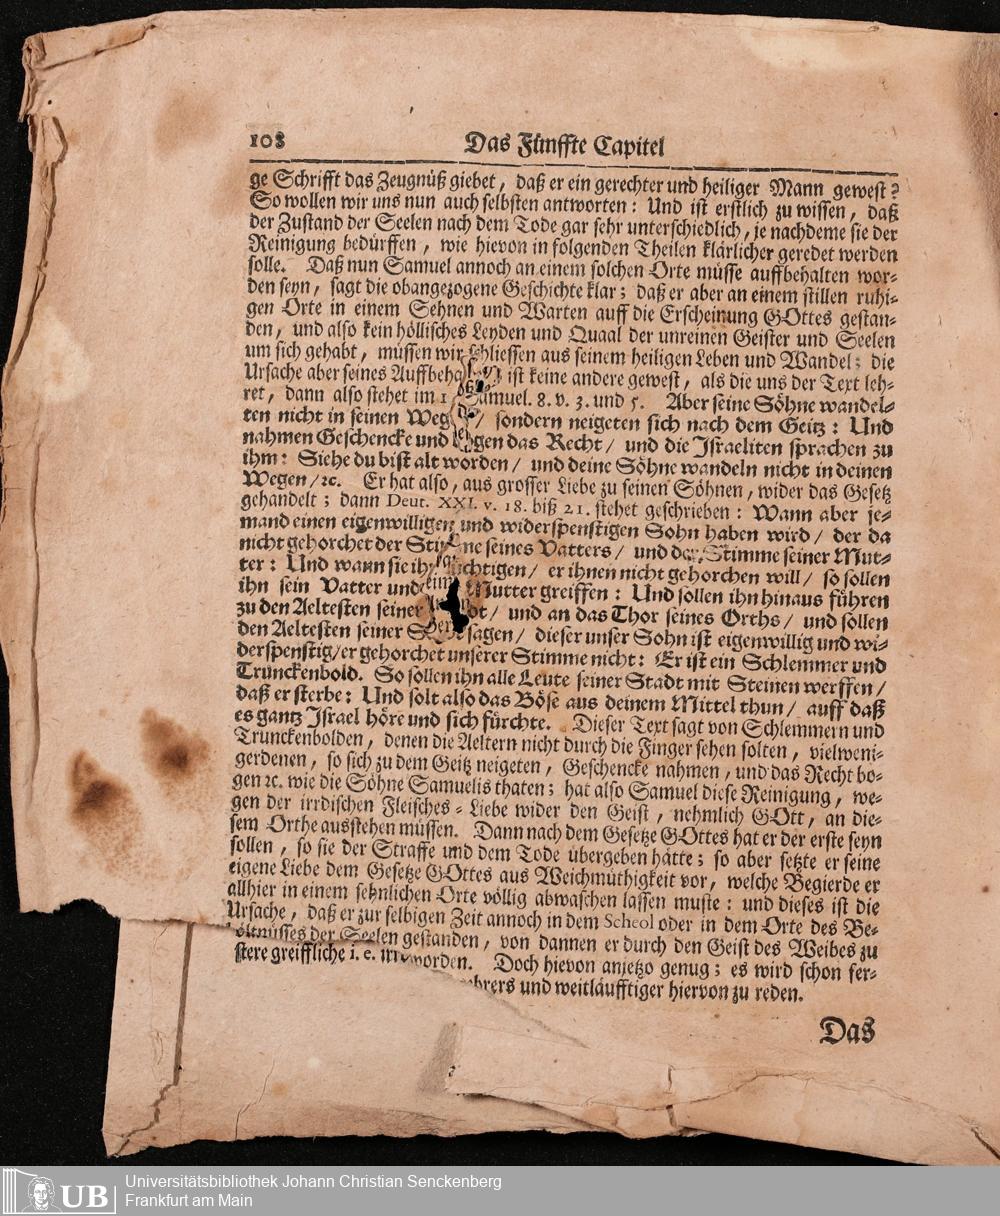 108 Das Fünffte Capitel
ge Schrifft das Zeugnüß giebet, daß er ein gerechter und heiliger Mann gewest?
So wollen wir uns nun auch selbsten antworten: Und ist erstlich zu wissen, daß
der Zustand der Seelen nach dem Tode gar sehr unterschiedlich, je nachdeme sie der
Reinigung bedürffen, wie hievon in folgenden Theilen klärlicher geredet werden
solle. Daß nun Samuel annoch an einem solchen Orte müsse auffbehalten wor-
den seyn, sagt die obangezogene Geschichte klar; daß er aber an einem stillen ruhi-
gen Orte in einem Sehnen und Warten auff die Erscheinung GOttes gestan-
den, und also kein höllisches Leyden und Quaal der unreinen Geister und Seelen
um sich gehabt, müssen wir schliessen aus seinem heiligen Leben und Wandel; die
Ursache aber seines Auffbeha ist keine andere gewest, als die uns der Text leh-
ret, dann also stehet im 1 Samuel. 8. v. 3. und 5. Aber seine Söhne wandel-
ten nicht in seinen Weg / sondern neigeten sich nach dem Geitz: Und
nahmen Geschencke und gen das Recht / und die Israeliten sprachen zu
ihm: Siehe du bist alt worden / und deine Söhne wandeln nicht in deinen
Wegen / ꝛc. Er hat also, aus grosser Liebe zu seinen Söhnen, wider das Gesetz
gehandelt; dann Deut. XXI. v. 18. biß 21. stehet geschrieben: Wann aber je-
mand einen eigenwilligen und widerspenstigen Sohn haben wird / der da
nicht gehorchet der Stimme seines Vatters / und der Stimme seiner Mut-
ter: Und wann sie ihn züchtigen / er ihnen nicht gehorchen will / so sollen
ihn sein Vatter und seine Mutter greiffen: Und sollen ihn hinaus führen
zu den Aeltesten seiner / und an das Thor seines Orths / und sollen
den Aeltesten seiner sagen / dieser unser Sohn ist eigenwillig und wi-
derspenstig / er gehorchet unserer Stimme nicht: Er ist ein Schlemmer und
Trunckenbold. So sollen ihn alle Leute seiner Stadt mit Steinen werffen /
daß er sterbe: Und solt also das Böse aus deinem Mittel thun / auff daß
es gantz Israel höre und sich fürchte. Dieser Text sagt von Schlemmern und
Trunckenbolden, denen die Aeltern nicht durch die Finger sehen solten, vielweni-
gerdenen, so sich zu dem Geitz neigeten, Geschencke nahmen, und das Recht bo-
gen ꝛc. wie die Söhne Samuelis thaten; hat also Samuel diese Reinigung, we-
gen der irrdischen Fleisches-Liebe wider den Geist, nehmlich GOtt, an die-
sem Orthe ausstehen müssen. Dann nach dem Gesetze GOttes hat er der erste seyn
sollen, so sie der Straffe und dem Tode übergeben hätte; so aber setzte er seine
eigene Liebe dem Gesetze GOttes aus Weichmüthigkeit vor, welche Begierde er
allhier in einem sehnlichen Orte völlig abwaschen lassen muste: und dieses ist die
Ursache, daß er zur selbigen Zeit annoch in dem Scheol oder in dem Orte des Be-
hältnüsses der Seelen gestanden, von dannen er durch den Geist des Weibes zu
greiffliche i. e. worden. Doch hievon anjetzo genug; es wird schon fer-
und weitläufftiger hiervon zu reden.
Das
UB
Universitätsbibliothek Johann Christian Senckenberg
Frankfurt am Main